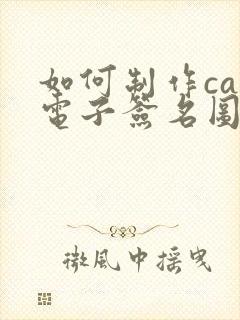 如何制作ca
電子簽名圖
微風中摇曳